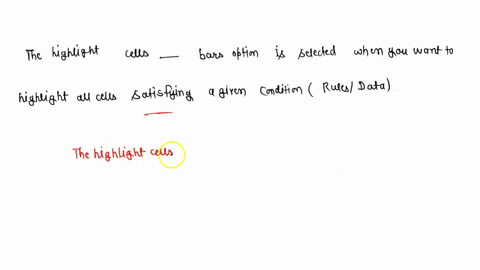 The highlight cells __ bars option is selected when you want to
highlight all cells satisfying a given condition ( Rules/ Data).
The highlight cells